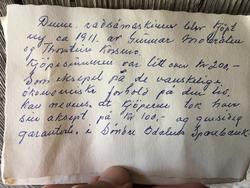 Denne radsåmaskinen blev kjøpt
ny ca 1911. av Gunnar
og Thorstein
Kjøpesummen var litt over kr 200,-
Som eksempel på de vanskelige
økonomiske forhold på den tid,
kan nevnes at kjøperne tok hver
sin aksept på kr 100,- og gjensidig
garanterte i Søndre Odalen Sparebank.